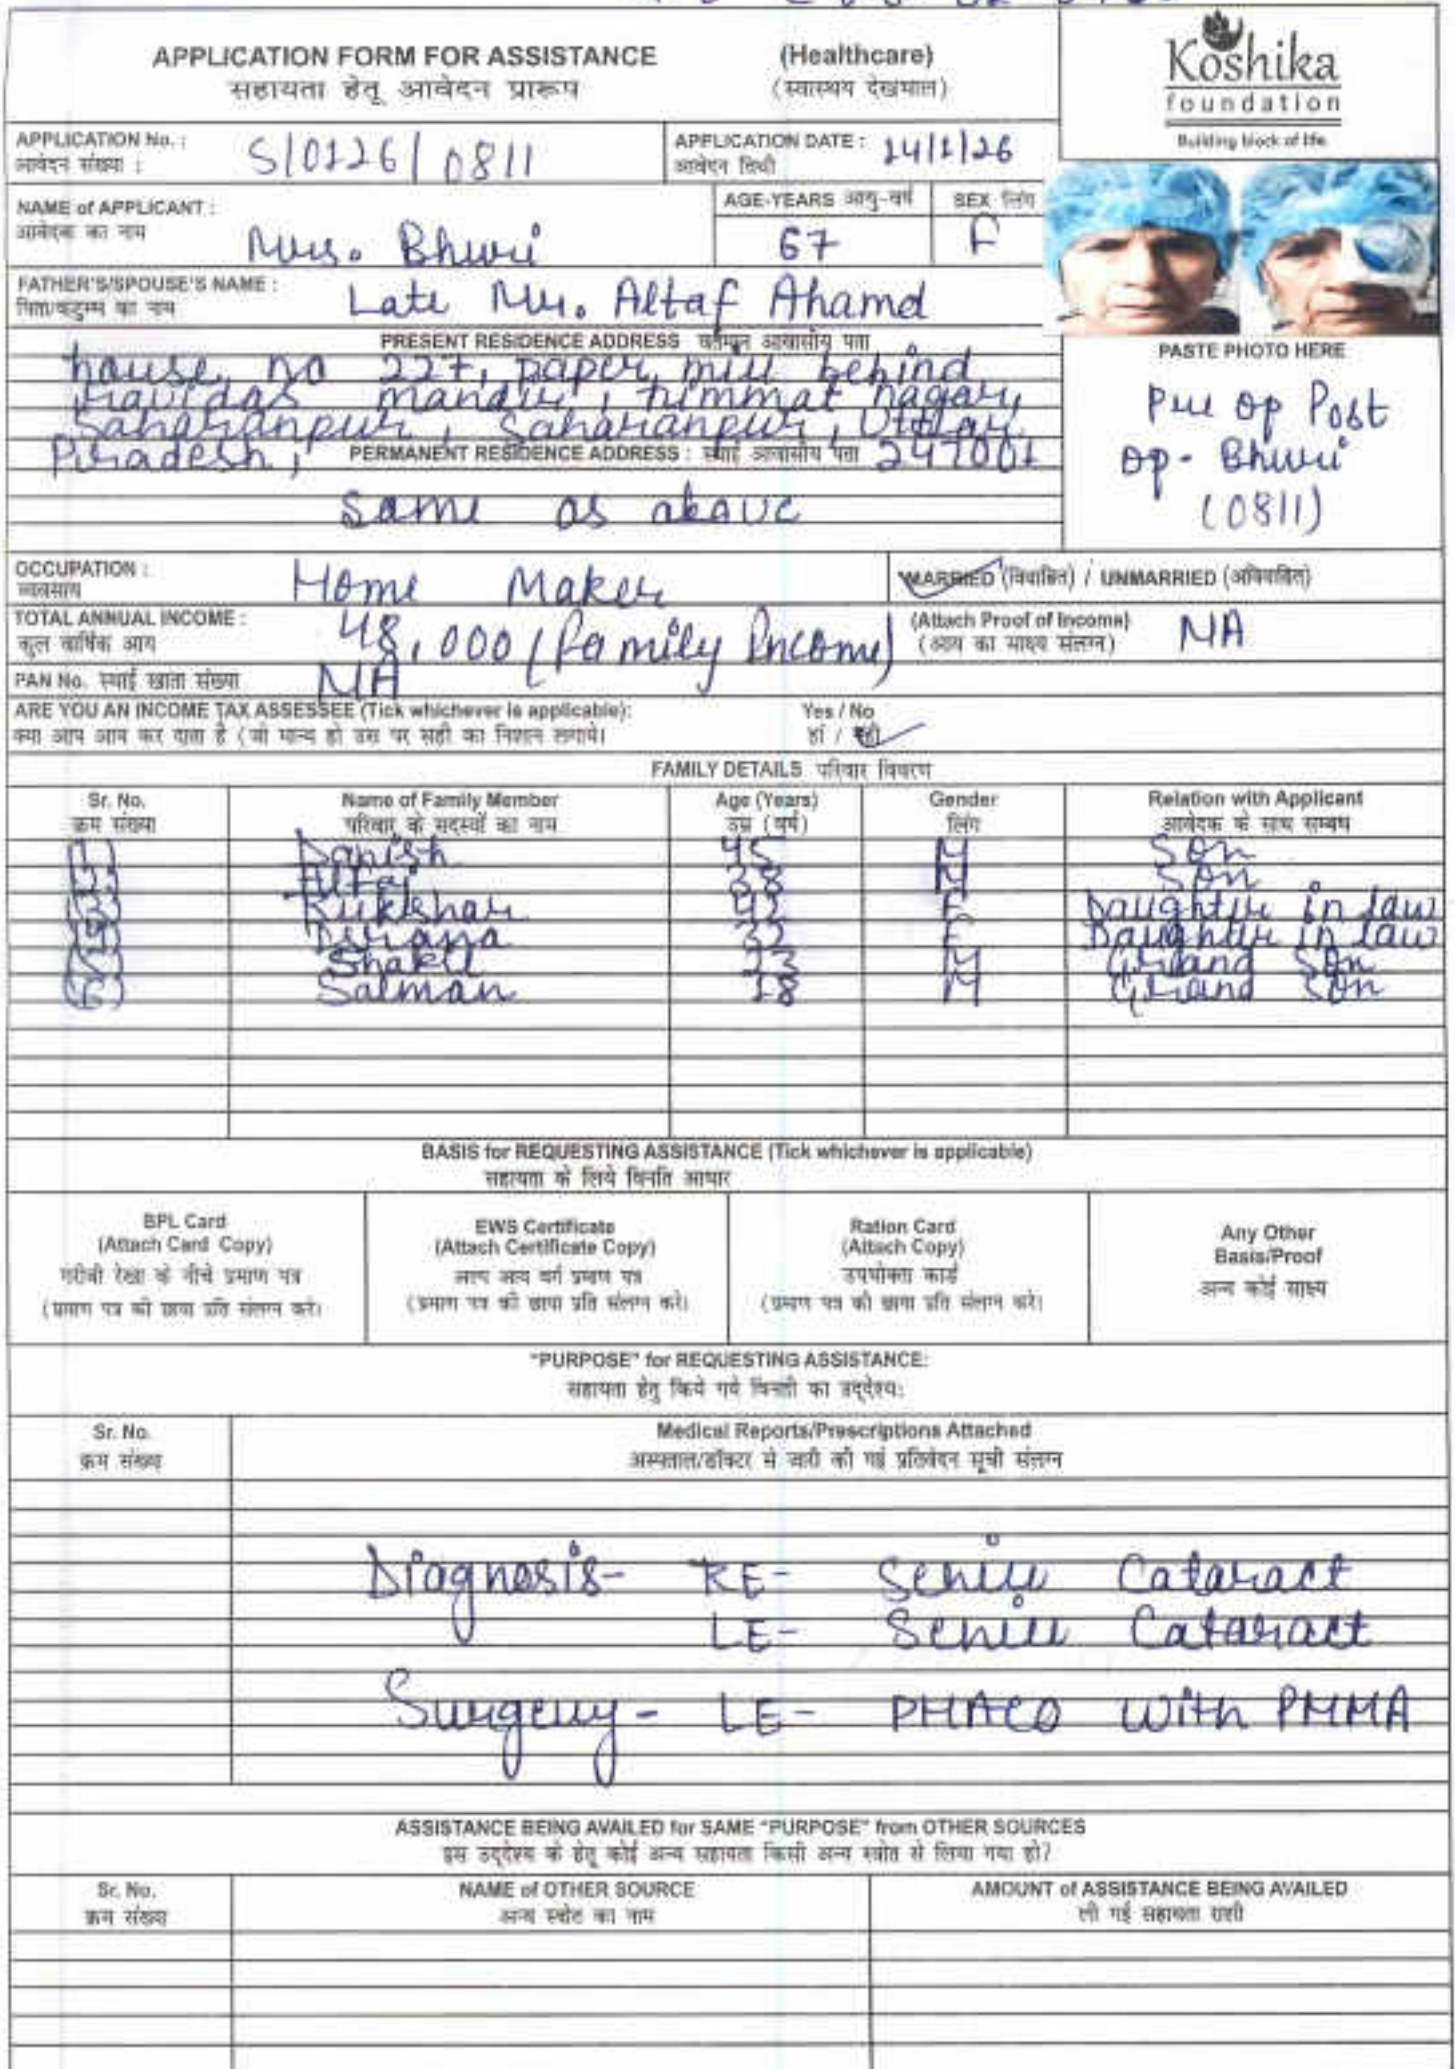 APPLICATION FORM FOR ASSISTANCE (Healthcare)
सहायता हेतू आवेदन प्रारूप (स्वास्थय देखभाल)
Koshika
foundation
Building block of life
APPLICATION No. : S/0126/0811
आवेदन संख्या :
APPLICATION DATE : 14/1/26
आवेदन तिथी
NAME of APPLICANT : Mrs. Bhuri
आवेदक का नाम
AGE-YEARS आयु-वर्ष 67
SEX लिंग F
FATHER'S/SPOUSE'S NAME : Late Mr. Altaf Ahamd
पिता/कटुम्ब का नाम
PRESENT RESIDENCE ADDRESS वर्तमान आवासीय पता
house no 227, paper mill behind
ravidas mandir, himmat nagar,
Saharanpur, Saharanpur, Uttar
Pradesh, 247001
PERMANENT RESIDENCE ADDRESS : स्थाई आवासीय पता
Same as above
PASTE PHOTO HERE
Pre op Post
op - Bhuri
(0811)
OCCUPATION : Home Maker
व्यवसाय
MARRIED (विवाहित) / UNMARRIED (अविवाहित)
TOTAL ANNUAL INCOME : 48,000 (Family Income)
कुल वार्षिक आय
(Attach Proof of Income) NA
(आय का साक्ष्य संलग्न)
PAN No. स्थाई खाता संख्या NA
ARE YOU AN INCOME TAX ASSESSEE (Tick whichever is applicable): Yes / No
क्या आप आय कर दाता है (जो मान्य हो उस पर सही का निशान लगाये। हां / नही
FAMILY DETAILS परिवार विवरण
Sr. No. Name of Family Member Age (Years) Gender Relation with Applicant
क्रम संख्या परिवार के सदस्यों का नाम उम्र (वर्ष) लिंग आवेदक के साथ सम्बध
(1) Danish 45 M Son
(2) 38 M Son
(3) Rukhshar 42 F Daughter in law
(4) F Daughter in law
(5) Shakil 23 M Grand Son
(6) Salman 18 M Grand Son
BASIS for REQUESTING ASSISTANCE (Tick whichever is applicable)
सहायता के लिये विनति आधार
BPL Card
(Attach Card Copy)
गरीबी रेखा के नीचे प्रमाण पत्र
(प्रमाण पत्र की छाया प्रति संलग्न करे।
EWS Certificate
(Attach Certificate Copy)
अल्प आय वर्ग प्रमाण पत्र
(प्रमाण पत्र की छाया प्रति संलग्न करे।
Ration Card
(Attach Copy)
उपभोक्ता कार्ड
(प्रमाण पत्र की छाया प्रति संलग्न करे।
Any Other
Basis/Proof
अन्य कोई साक्ष्य
"PURPOSE" for REQUESTING ASSISTANCE:
सहायता हेतु किये गये विनती का उद्देश्य:
Sr. No. Medical Reports/Prescriptions Attached
क्रम संख्या अस्पताल/डॉक्टर से जारी की गई प्रतिवेदन सूची संलग्न
Diagnosis- RE- Senile Cataract
LE- Senile Cataract
Surgery- LE- PHACO with PMMA
ASSISTANCE BEING AVAILED for SAME "PURPOSE" from OTHER SOURCES
इस उद्देश्य के हेतू कोई अन्य सहायता किसी अन्य स्त्रोत से लिया गया हो?
Sr. No. NAME of OTHER SOURCE AMOUNT of ASSISTANCE BEING AVAILED
क्रम संख्या अन्य स्त्रोत का नाम ली गई सहायता राशी